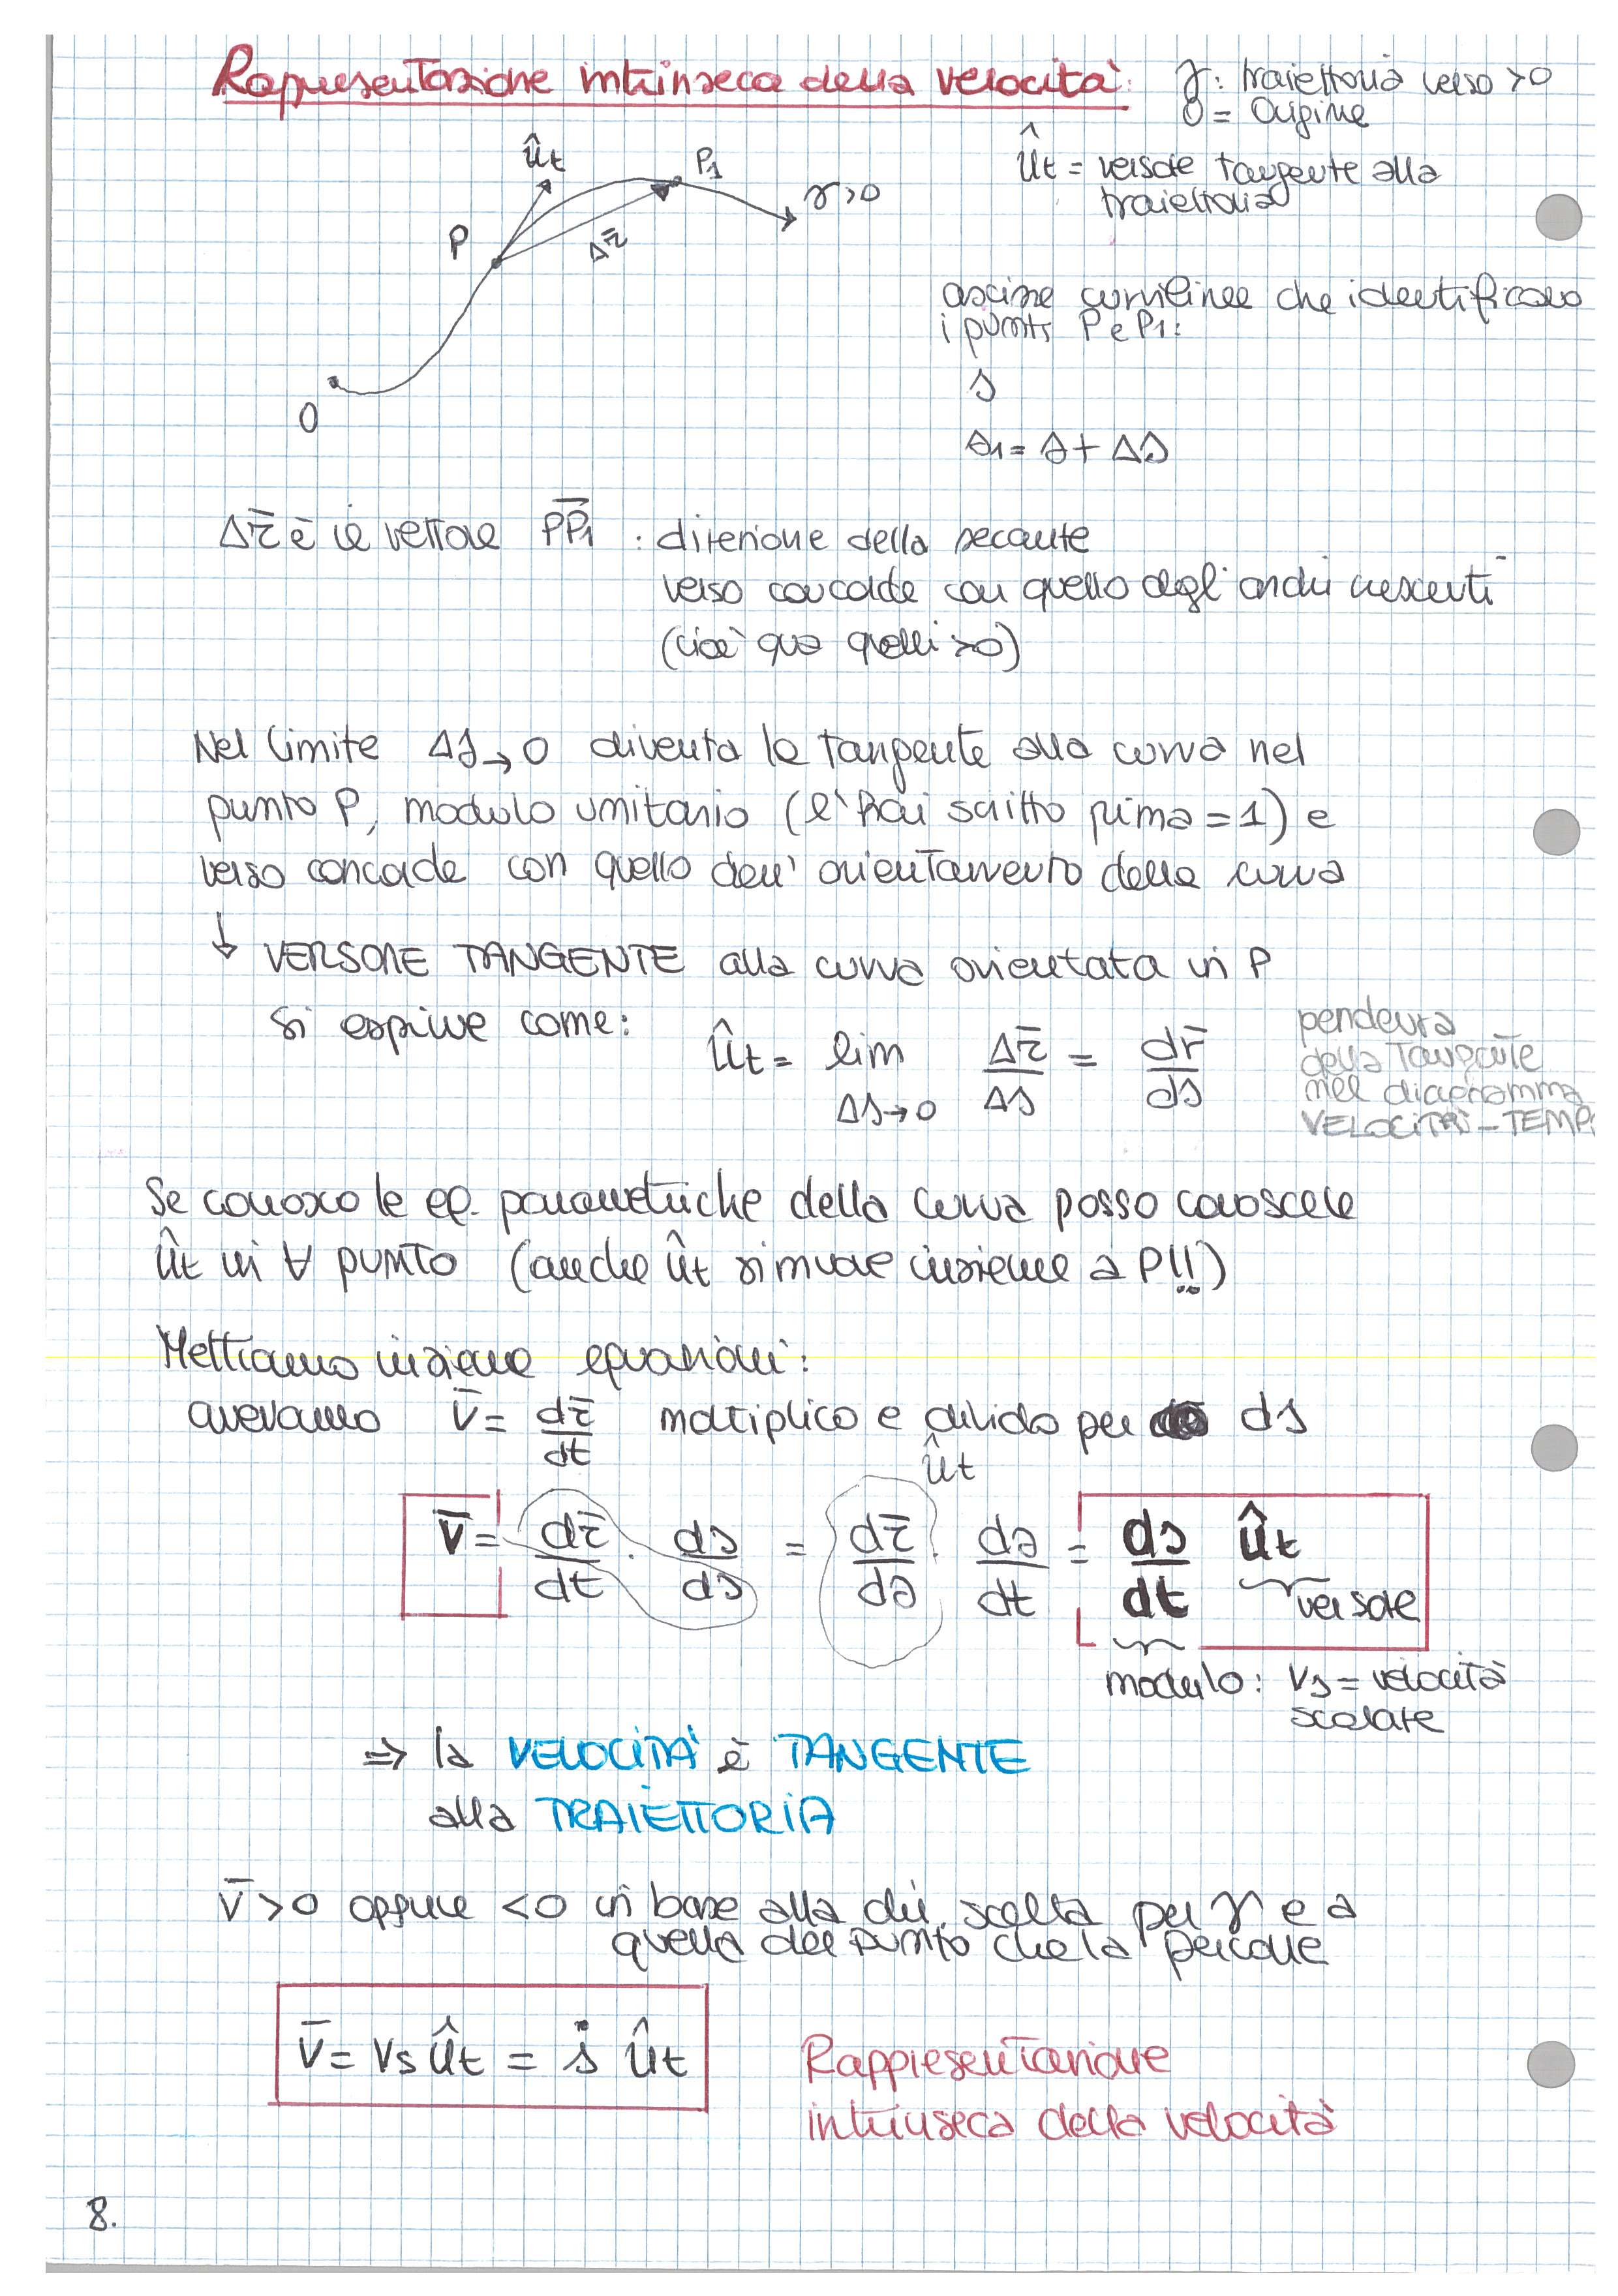 Rappresentazione intrinseca della velocità:
γ: traiettoria verso >0
O = Origine
ût = versore tangente alla
traiettoria
ût
P1
γ>0
P
Δr̄
O
ascisse curvilinee che identificano
i punti P e P1:
s
s1 = s + Δs
Δr̄ è il vettore PP1 : direzione della secante
verso concorde con quello degli archi crescenti
(cioè qua quelli >0)
Nel limite Δs→0 diventa la tangente alla curva nel
punto P, modulo unitario (l'hai scritto prima = 1) e
verso concorde con quello dell'orientamento della curva
↓ VERSORE TANGENTE alla curva orientata in P
Si esprime come: ût = lim Δs→0 Δr̄/Δs = dr̄/ds
pendenza
della tangente
nel diagramma
VELOCITÀ-TEMPI
Se conosco le eq. parametriche della curva posso conoscere
ût in ∀ punto (anche ût si muove insieme a P!!)
Mettiamo insieme equazioni:
avevamo v̄ = dr̄/dt moltiplico e divido per ds
ût
v̄ = dr̄/dt · ds/ds = dr̄/ds · ds/dt = ds/dt ût
versore
modulo: vs = velocità
scalare
⇒ la VELOCITÀ è TANGENTE
alla TRAIETTORIA
v̄ >0 oppure <0 in base alla dir. scelta per γ e a
quella del punto che la percorre
v̄ = vs ût = ṡ ût
Rappresentazione
intrinseca della velocità
8.